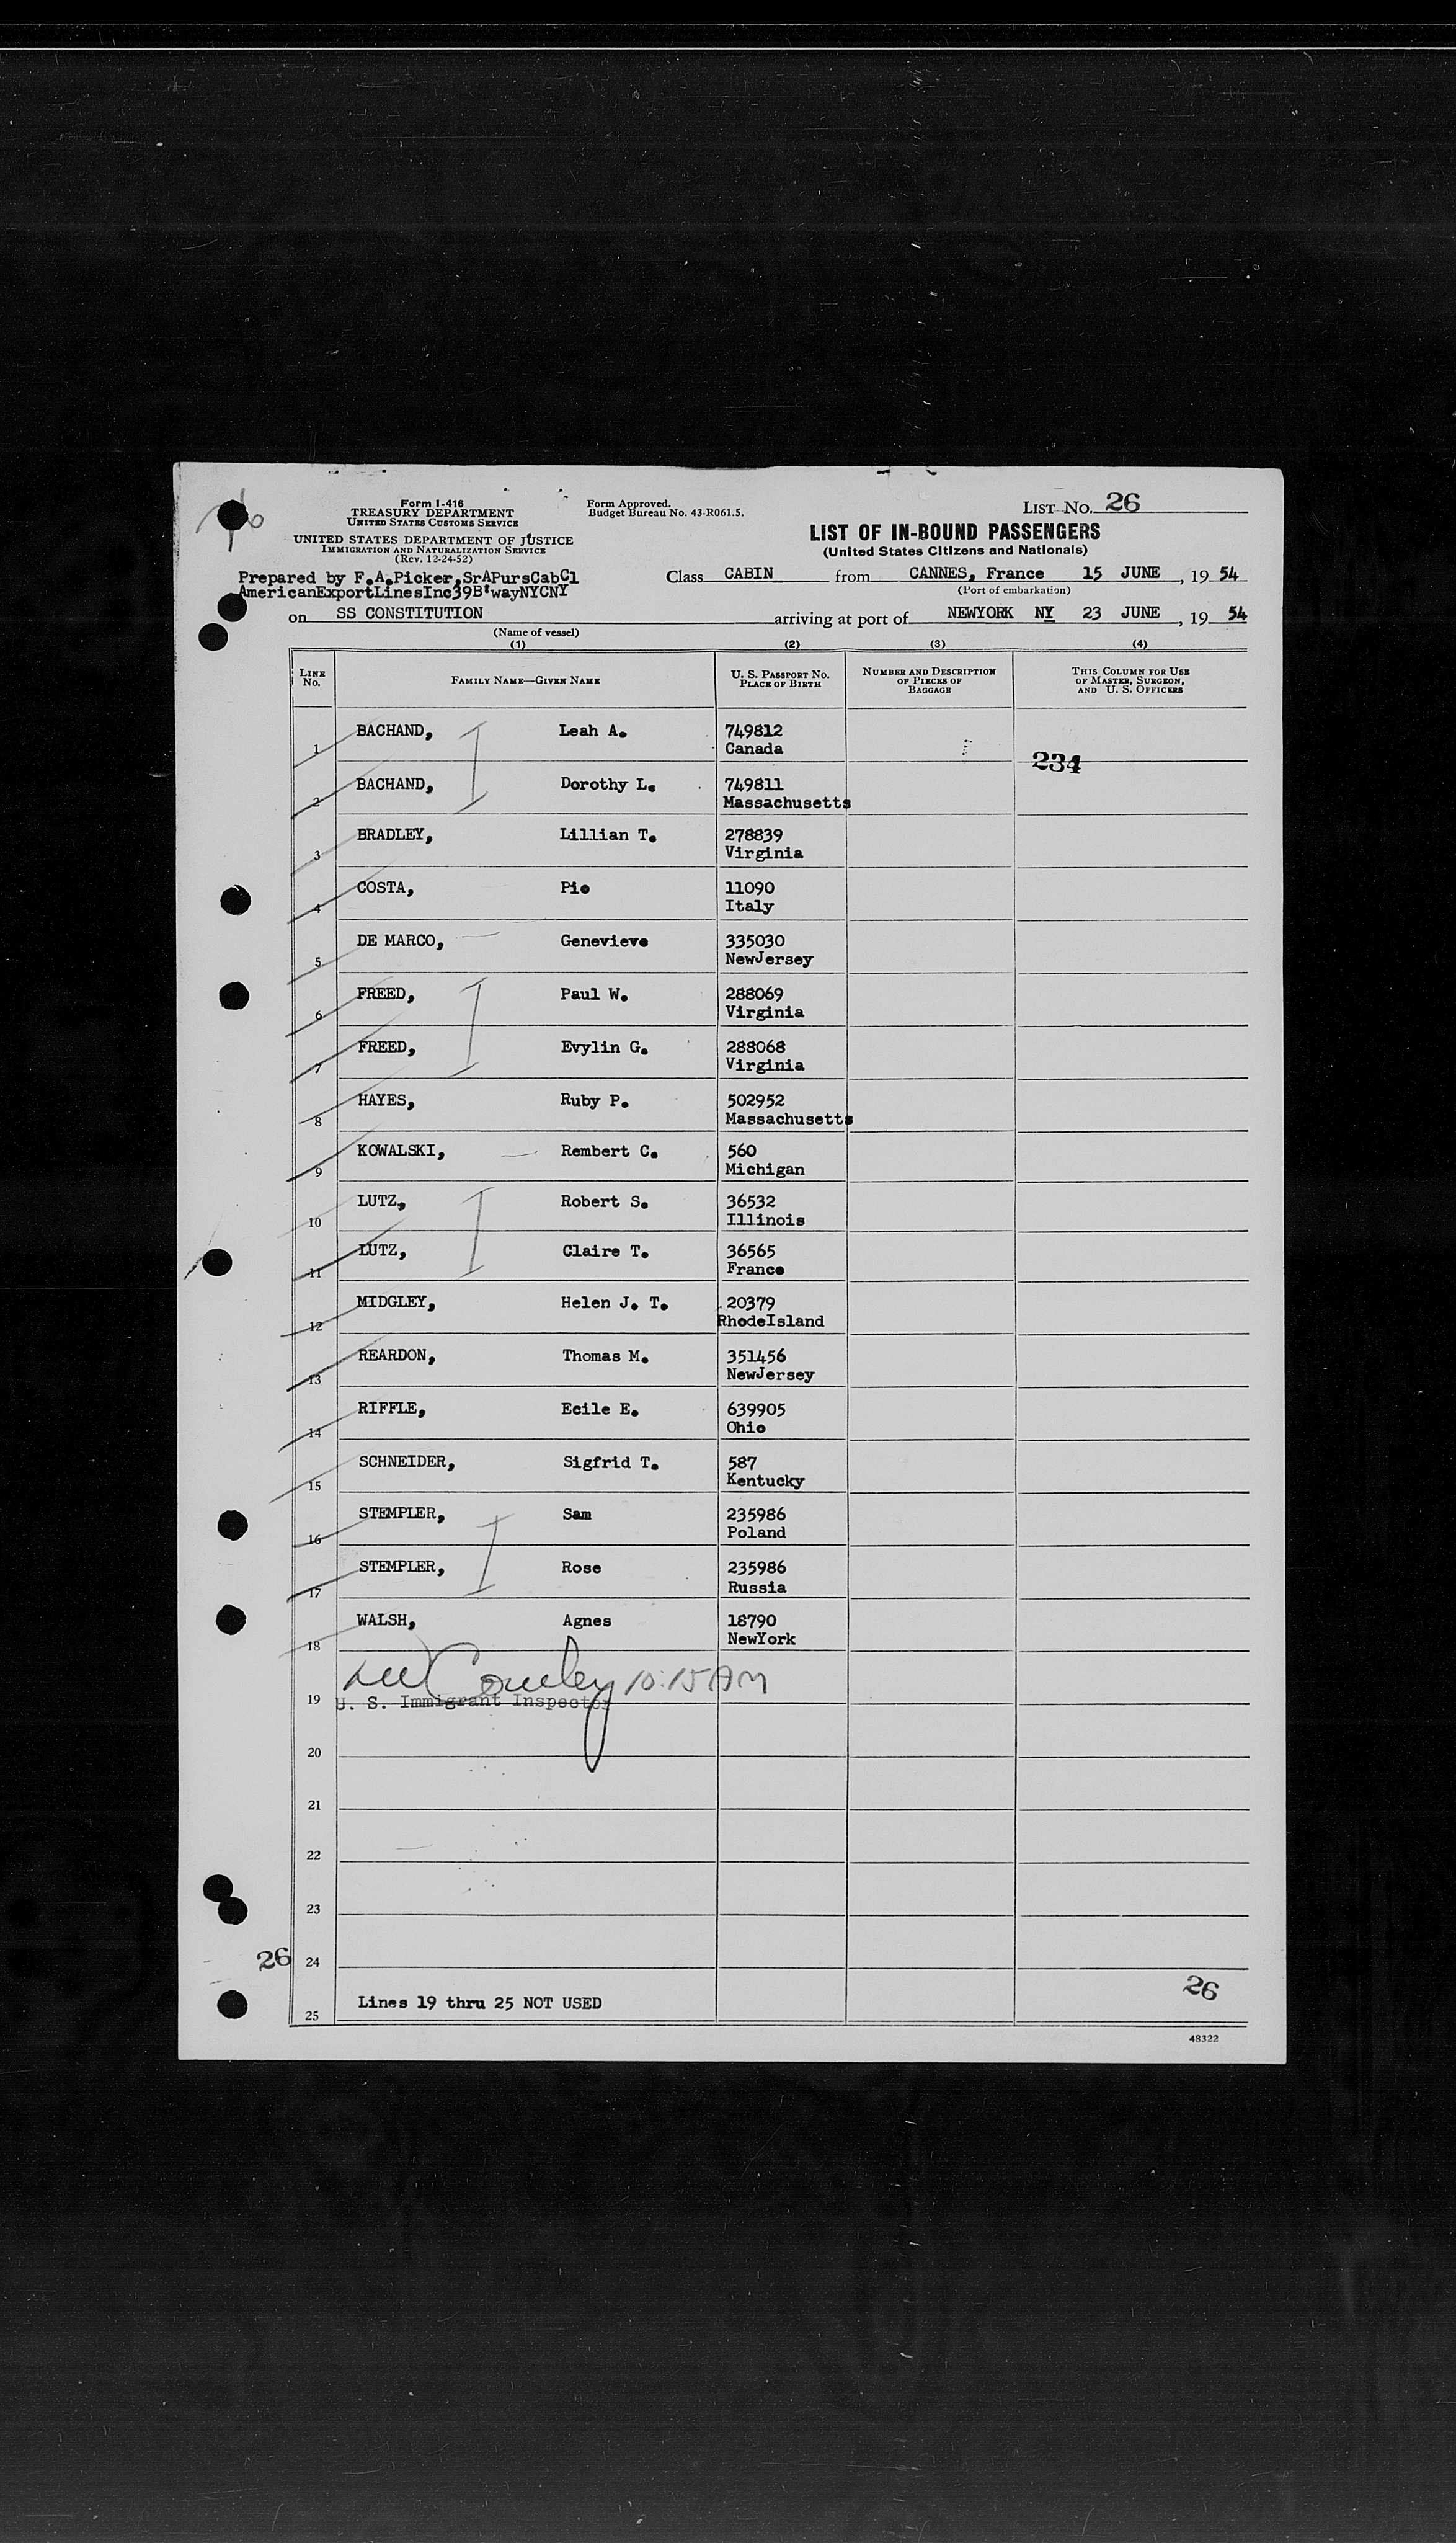 Form I-416
TREASURY DEPARTMENT
UNITED STATES CUSTOMS SERVICE
UNITED STATES DEPARTMENT OF JUSTICE
IMMIGRATION AND NATURALIZATION SERVICE
(Rev. 12-24-52)
Form Approved.
Budget Bureau No. 43-R061.5.
LIST No. 26
LIST OF IN-BOUND PASSENGERS
(United States Citizens and Nationals)
Prepared by F.A.Picker,SrAPursCabCl
AmericanExportLinesInc39B'wayNYCNY
Class CABIN from CANNES, France 15 JUNE, 19 54
(Port of embarkation)
on SS CONSTITUTION arriving at port of NEWYORK NY 23 JUNE, 19 54
(Name of vessel)
(1) (2) (3) (4)
LINE No. FAMILY NAME—GIVEN NAME U. S. PASSPORT NO. PLACE OF BIRTH NUMBER AND DESCRIPTION OF PIECES OF BAGGAGE THIS COLUMN FOR USE OF MASTER, SURGEON, AND U. S. OFFICERS
1 BACHAND, Leah A. 749812
Canada
234
2 BACHAND, Dorothy L. 749811
Massachusetts
3 BRADLEY, Lillian T. 278839
Virginia
4 COSTA, Pio 11090
Italy
5 DE MARCO, Genevieve 335030
NewJersey
6 FREED, Paul W. 288069
Virginia
7 FREED, Evylin G. 288068
Virginia
8 HAYES, Ruby P. 502952
Massachusetts
9 KOWALSKI, Rembert C. 560
Michigan
10 LUTZ, Robert S. 36532
Illinois
11 LUTZ, Claire T. 36565
France
12 MIDGLEY, Helen J. T. 20379
RhodeIsland
13 REARDON, Thomas M. 351456
NewJersey
14 RIFFLE, Ecile E. 639905
Ohio
15 SCHNEIDER, Sigfrid T. 587
Kentucky
16 STEMPLER, Sam 235986
Poland
17 STEMPLER, Rose 235986
Russia
18 WALSH, Agnes 18790
NewYork
10:15 AM
19 U. S. Immigrant Inspector
20
21
22
23
26 24
26
25 Lines 19 thru 25 NOT USED
48322